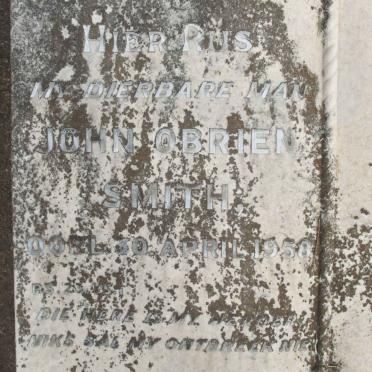 HIER RUS
MY DIERBARE MAN
JOHN OBRIEN
SMITH
OORL. 30 APRIL 1950
PS. 23
DIE HERE IS MY HERDER
NIKS SAL MY ONTBREEK NIE